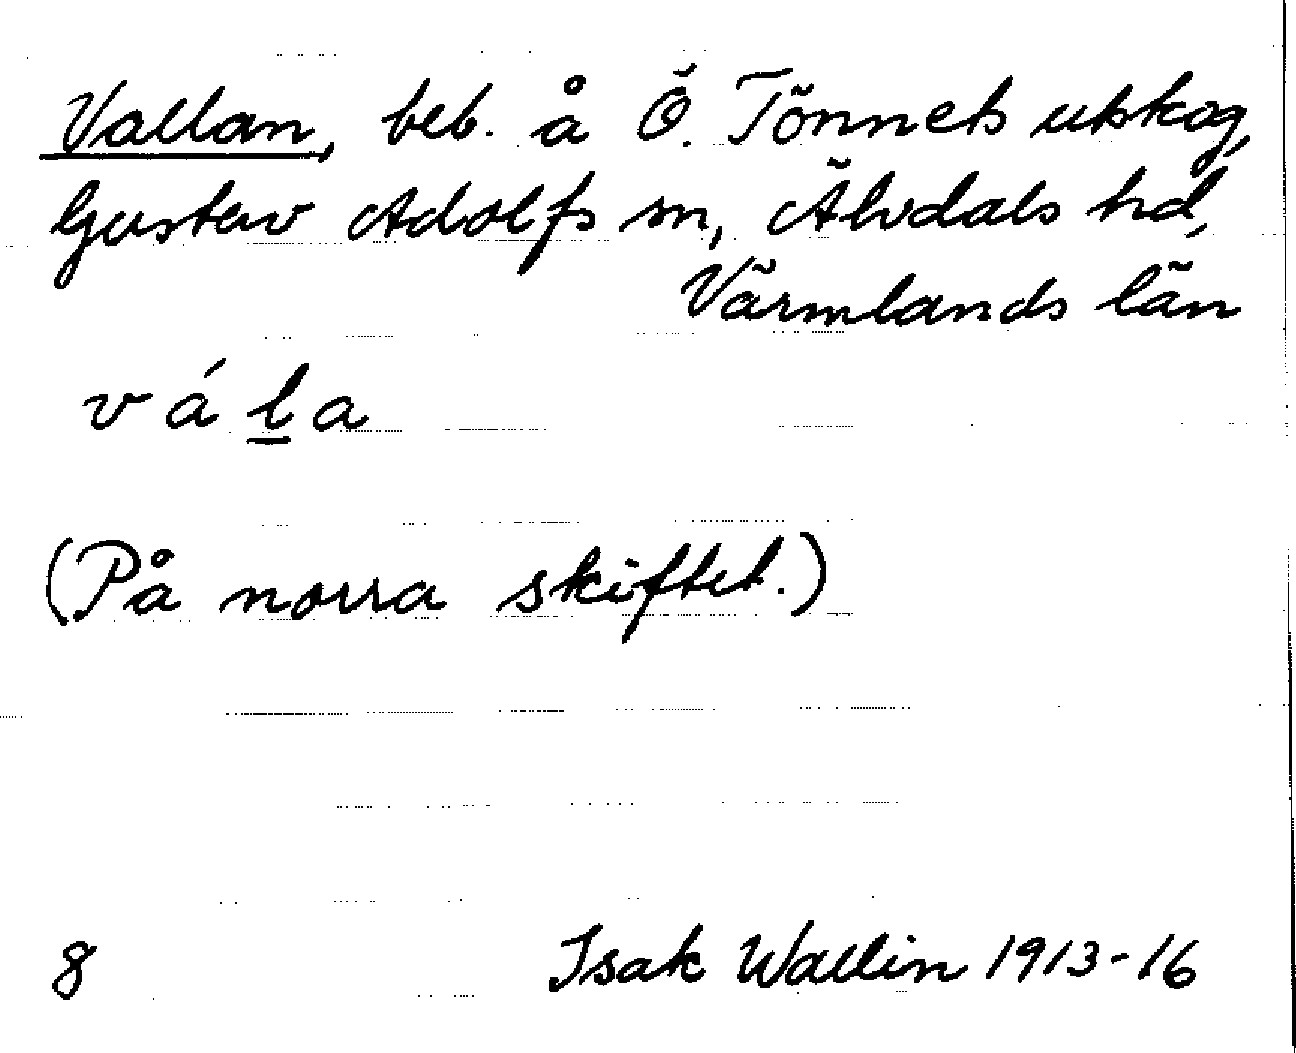 Vallan, beb. å Ö. Tönnets utskog,
Gustav Adolfs sn, Älvdals hd,
Värmlands län
v á l a
(På norra skiftet.)
8 Isak Wallin 1913-16